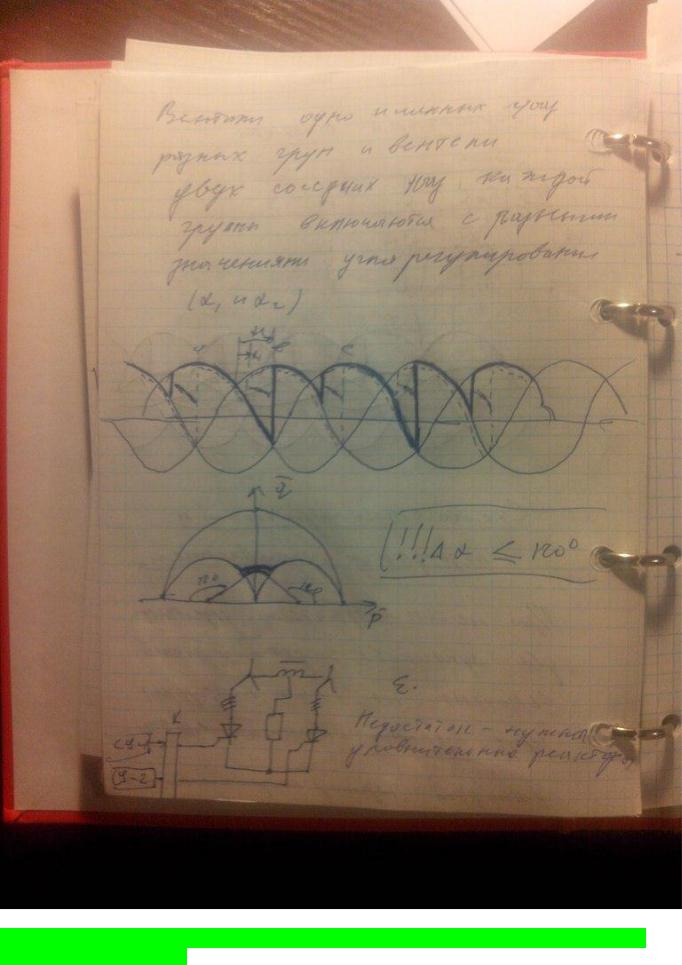 Вентили одно именных фаз
разных груп и вентели
двух соседних фаз каждой
групы включаются с разными
значениями угла регулирования
(α₁ и α₂)
a b c
q̄
!!! Δα ≤ 120°
120 120
p̄
К
СУ-1
У-2
Недостаток - нужны
уровнительные реакторы